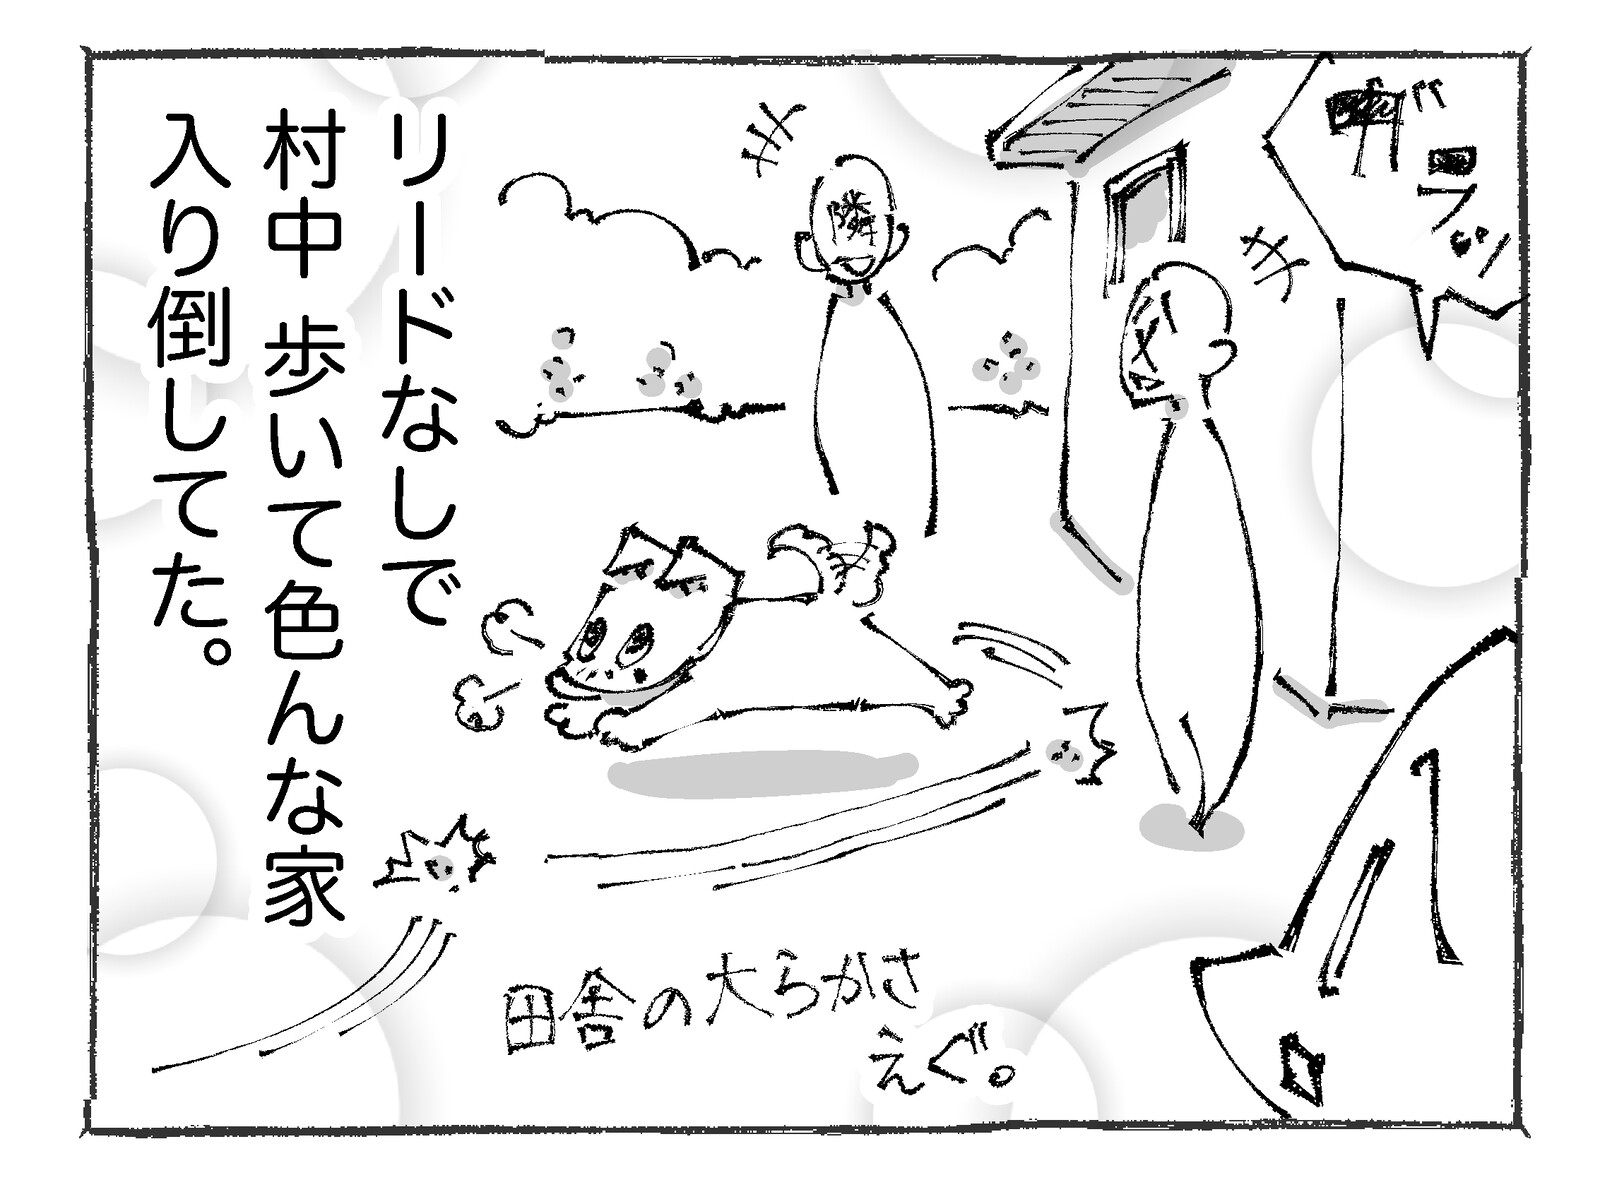 リードなしで
村中 歩いて色んな家
入り倒してた。
ガラッ
隣
田舎の大らかさ
えぐ。